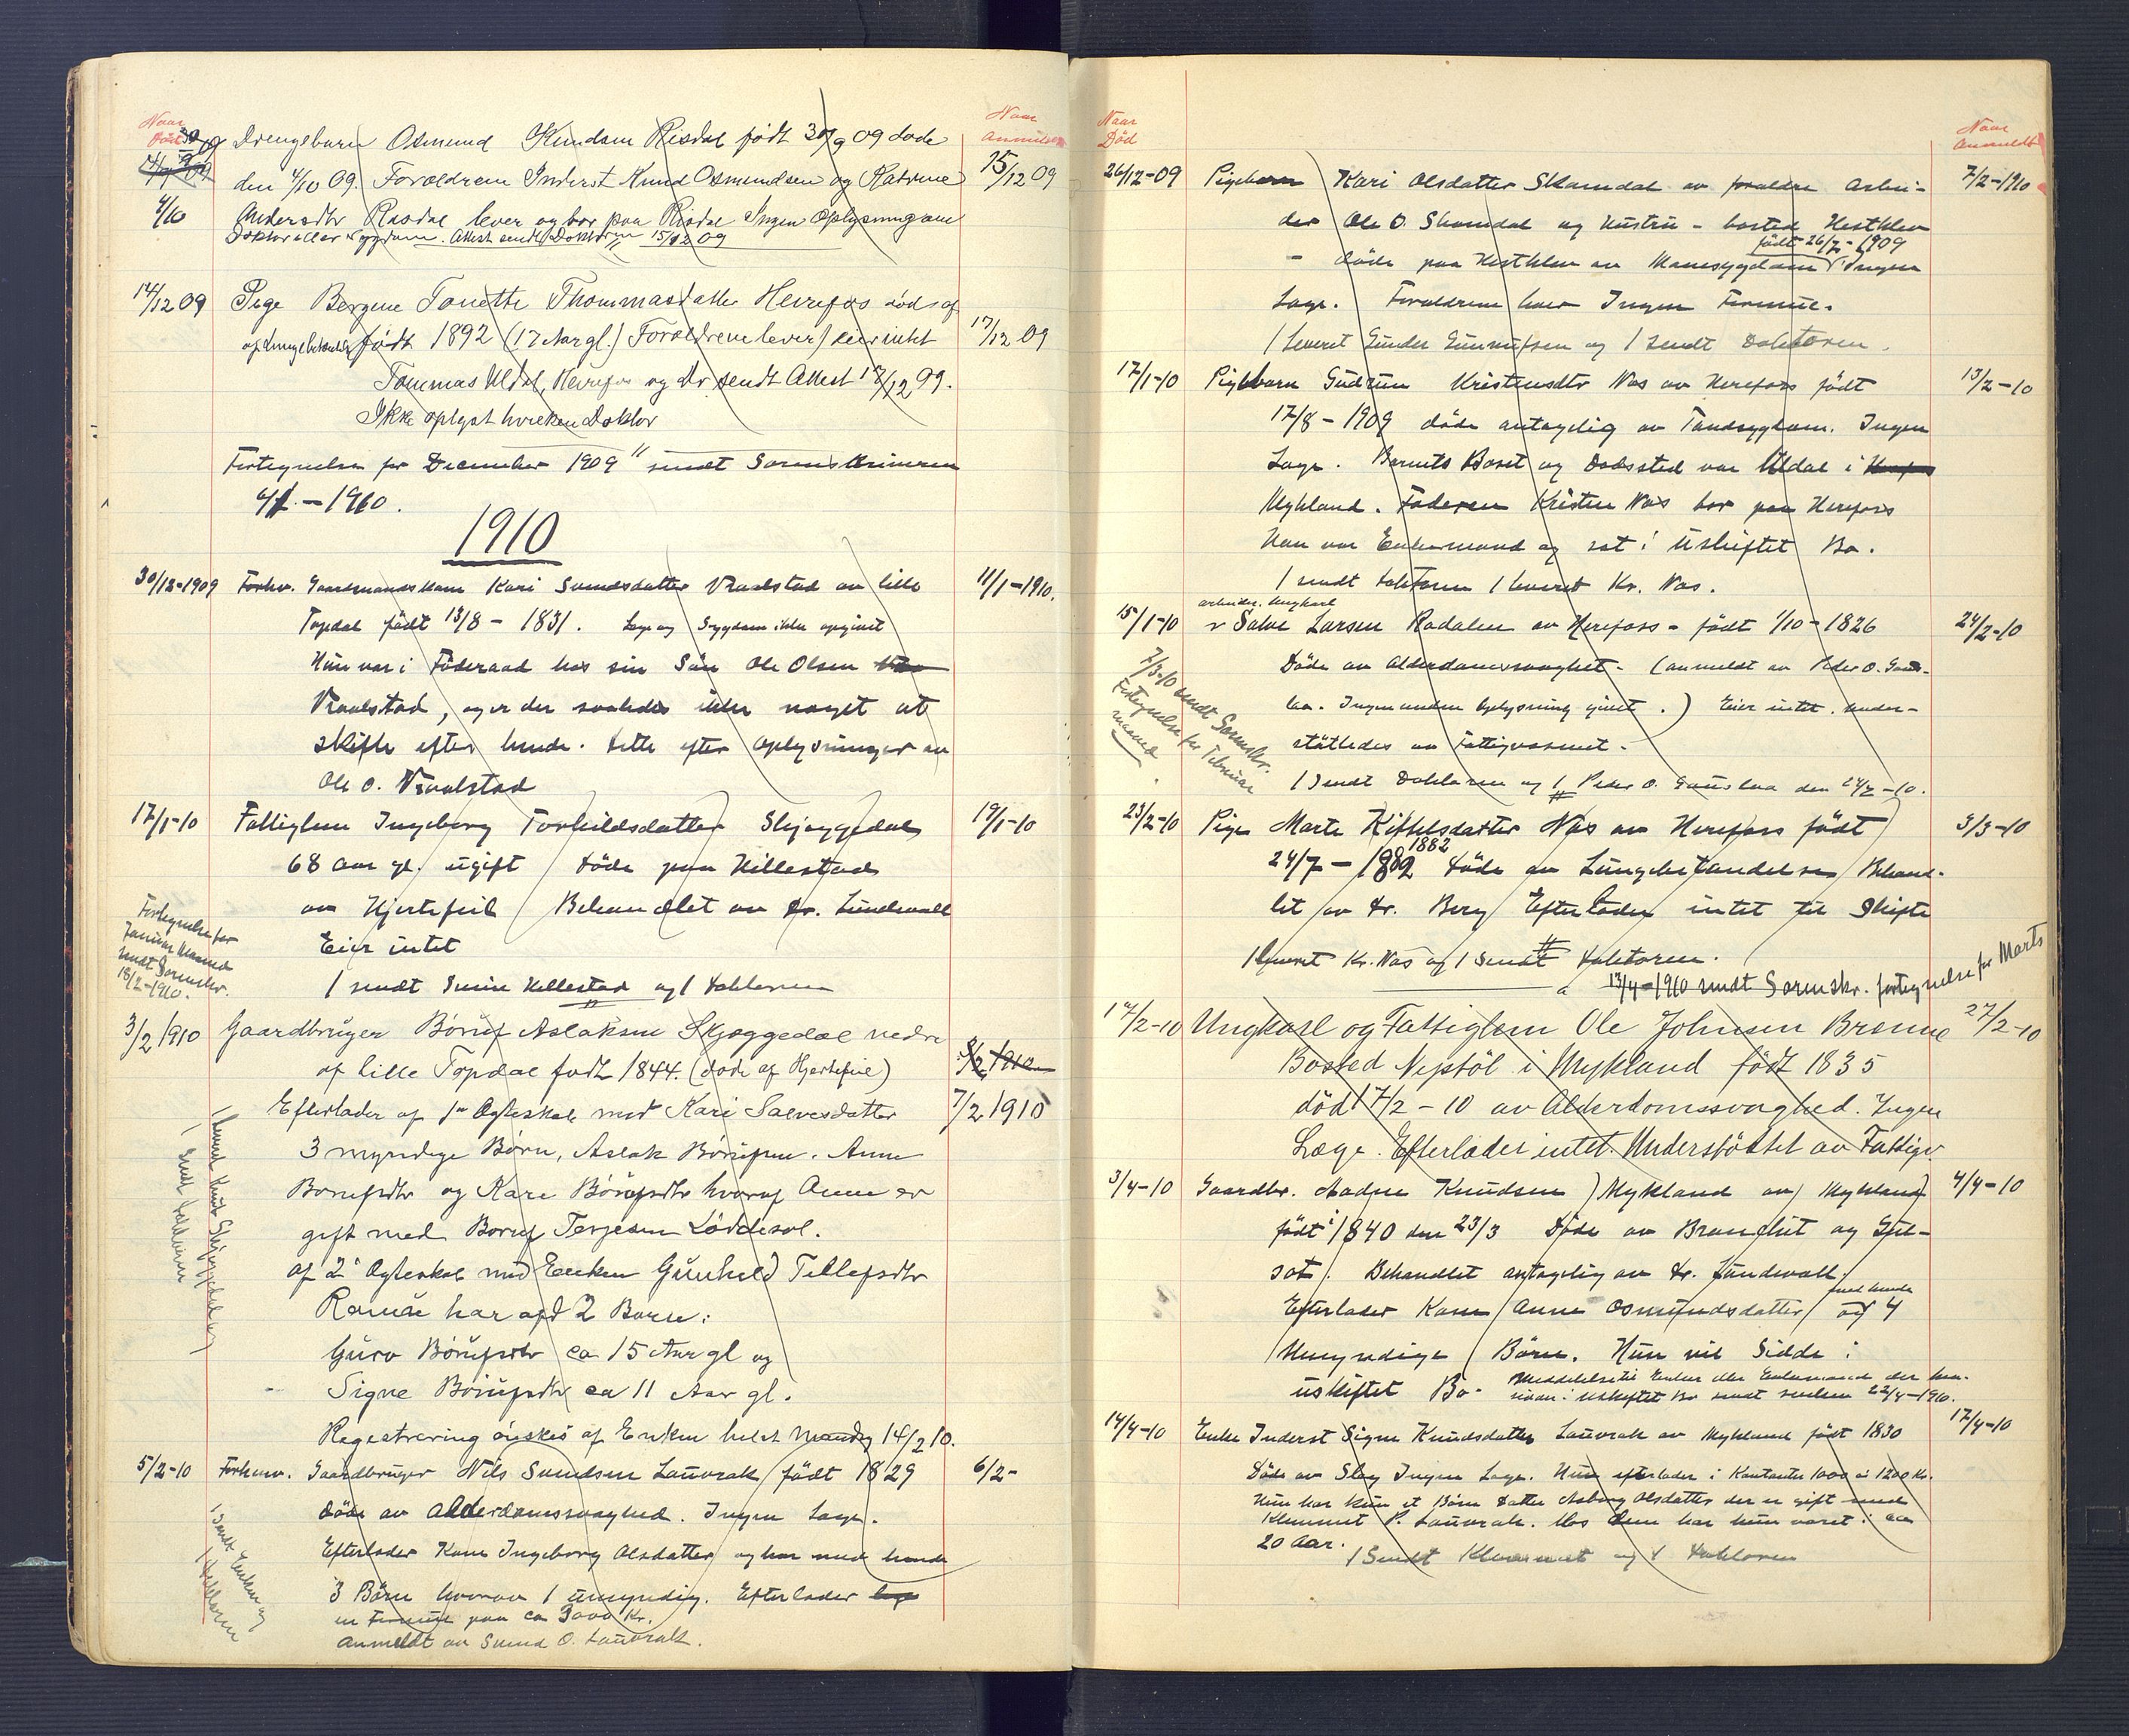 Naar Død
Naar Anmeldt
Drengebarn Osmund Knudsen Risdal født 30/9 09 døde
den 4/10 09. Forældrene Inderst Knud Osmundsen og Katrine 15/12 09
4/10 Andersdtr Risdal lever og bor paa Risdal Ingen Oplysning om
Doktor eller Sygdom. Attest sendt Doktoren 15/12 09
14/12 09 Pige Bergine Tonette Thommasdatter Herefos død af
født 1892 (17 Aar gl.) Forældrene lever, eier intet 17/12 09
Tommas Uldal, Herefos og Dr. sendt Attest 18/12 99.
Ikke oplyst hvilken Doktor
Fortegnelse for December 1909 sendt Sorenskriveren
4/1. - 1910.
1910
30/12-1909 Forhv. Gaardmandskone Kari Svendsdatter Vraalstad av lille 11/1-1910.
Topdal født 13/8 - 1831. Læge og Sygdom ikke opgivet
Hun var i Føderaad hos sin Søn Ole Olsen
Vraalstad, og er der saaledes ikke noget at
skifte efter hende. Dette efter Oplysninger av
Ole O. Vraalstad
17/1-10 Fattiglem Ingeborg Torkildsdatter Skjæggedal 19/1-10
68 aar gl. ugift døde paa Hillestad
av Hjertefeil Behandlet av Dr. Lundevall
Eier intet
1 sendt Hillestad og 1 Doktoren
Fortegnelse for
Januar Maaned
sendt Sorenskr.
18/2-1910.
3/2 1910 Gaardbruger Børuf Aslaksen Skjæggedal nedre
af lille Topdal født 1844. (døde af Hjertefeil) 8/2 1910
Efterlader af 1ste Ægteskab med Kari Salvesdatter 7/2 1910
3 myndige Børn, Aslak Børufsen. Anne
Børufsdtr og Kari Børufsdtr hvoraf Anne er
gift med Børuf Terjesen Løddesøl.
af 2det Ægteskab med Enken Gunhild Tellefsdtr
har afd 2 Børn:
Guro Børufsdtr ca 15 Aar gl og
Signe Børufsdtr ca 11 Aar gl.
Registrering ønskes af Enken helst Mandag 14/2 10.
1 leveret Knut Skjæggedal
1 sendt Doktoren
5/2-10 Forhenv. Gaardbruger Nils Svendsen Lauvrak født 1829 6/2-
døde av Alderdomssvaghed. Ingen Læge.
Efterlader Kone Ingeborg Olsdatter og har med hende
3 Børn hvorav 1 umyndig. Efterlader
en Formue paa ca 3000 Kr.
Anmeldt av Svend O. Lauvrak.
1 sendt Enken og
1 Doktoren
Naar Død
Naar Anmeldt
26/12-09 Pigebarn Kari Olsdatter Skamdal av forældre Arbei- 7/2-1910
der Ole O. Skamdal og Hustru - bosted Hestklev
født 26/7-1909
- døde paa Hestklev av Ingen
Læge. Forældrene har Ingen Formue.
1 Leveret Gunder Gunnufsen og 1 sendt Doktoren.
17/1-10 Pigebarn Gudrun Kristensdtr Næs av Herefoss født 13/2-10
17/8 - 1909 døde antagelig av Tandsygdom. Ingen
Læge. Barnets Bosted og Dødssted var Uldal i
Mykland. Faderen Kristen Næs bor paa Herefoss
Han var Enkemand og sat i Uskiftet Bo.
1 sendt Doktoren 1 leveret Kr. Næs.
arbeider. Ungkarl
15/1-10 Salve Larsen Rodalen av Herefoss - født 1/10-1826 24/2-10
Døde av Alderdomssvaghet. (anmeldt av Peder O. Gaus-
laa. Ingen anden Oplysning givet.) Eier intet. under-
støttedes av Fattigvæsenet.
1 Sendt Doktoren og 1 Peder O. Gauslaa den 24/2-10.
7/3-10 sendt Sorenskr.
Fortegnelse for Februar
maaned
23/2-10 Pige Marte Kittelsdatter Næs av Herefoss født 3/3-10
24/7 - 1882 1882 døde av Lungebetændelse Behand-
let av Dr. Berg Efterlader intet til Skifte
1 leveret Kr. Næs og 1 sendt Doktoren.
13/4-1910 sendt Sorenskr. fortegnelse for Marts
17/2-10 Ungkarl og Fattiglem Ole Johnsen Brenne 27/2-10
Bosted Nepstøl i Mykland født 1835
død 17/2 - 10 av Alderdomssvaghed. Ingen
Læge. Efterlader intet. Understøttet av Fattigv.
3/4-10 Gaardbr. Aadne Knudsen Mykland av Mykland 4/4-10
født 1840 den 23/3 Døde av Bronchit og
Behandlet antagelig av Dr. Lundevall.
Efterlader Kone Anne Osmundsdatter og med hende 4
Umyndige Børn. Hun vil Sidde i
uskiftet Bo. Meddelelse til Enker eller Enkemænd der hen-
sidder i Uskiftet Bo sendt enken 22/4-1910.
14/4-10 Enke Inderst Signe Knudsdatter Lauvrak av Mykland født 1830 17/4-10
Døde av Slag Ingen Læge. Hun efterlader i Kontanter 1000 à 1200 Kr.
Hun har kun et Barn Datter Aasborg Olsdatter der er gift med
Klemmet P. Lauvrak. Hos dem har hun været i ca
20 Aar. 1 Sendt Klemmet og 1 Doktoren